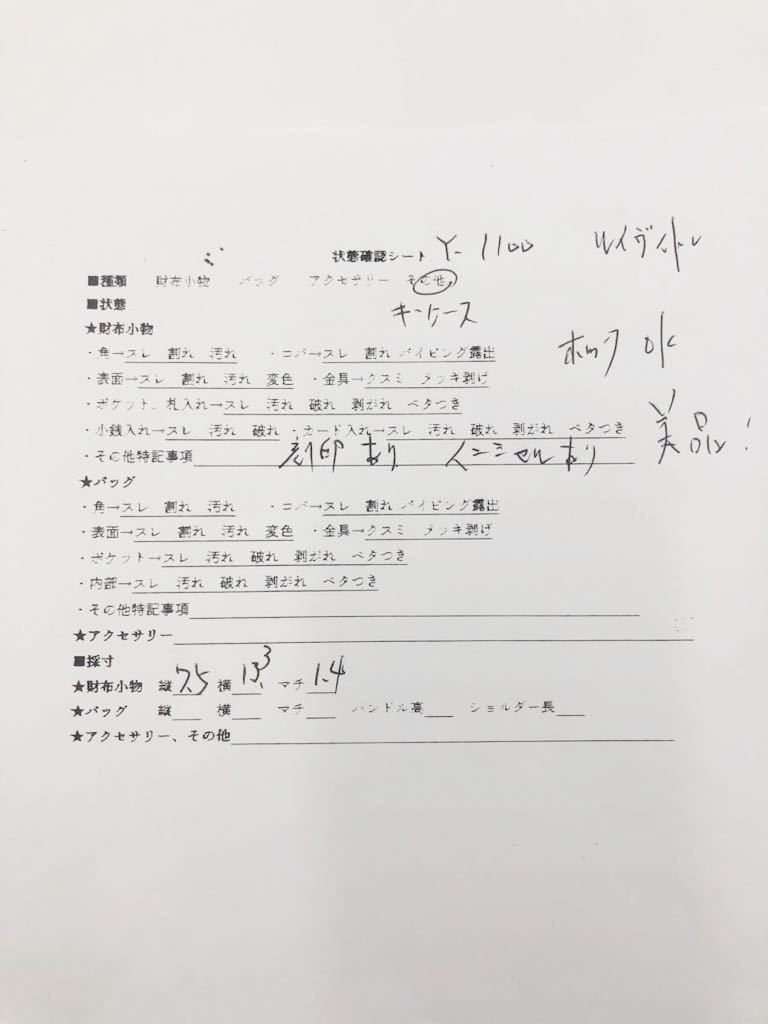 状態確認シート Y-1100 ルイヴィトン
■種類 財布小物 バッグ アクセサリー その他
■状態 キーケース
★財布小物
・角→スレ 割れ 汚れ ・コバ→スレ 割れ パイピング露出 ホック OK
・表面→スレ 割れ 汚れ 変色 ・金具→クスミ メッキ剥げ
・ポケット、札入れ→スレ 汚れ 破れ 剥がれ ベタつき
・小銭入れ→スレ 汚れ 破れ ・カード入れ→スレ 汚れ 破れ 剥がれ ベタつき 美品!
・その他特記事項 刻印あり イニシャルあり
★バッグ
・角→スレ 割れ 汚れ ・コバ→スレ 割れ パイピング露出
・表面→スレ 割れ 汚れ 変色 ・金具→クスミ メッキ剥げ
・ポケット→スレ 汚れ 破れ 剥がれ ベタつき
・内部→スレ 汚れ 破れ 剥がれ ベタつき
・その他特記事項
★アクセサリー
■採寸
★財布小物 縦 7.5 横 マチ 1.4
★バッグ 縦 横 マチ ハンドル高 ショルダー長
★アクセサリー、その他